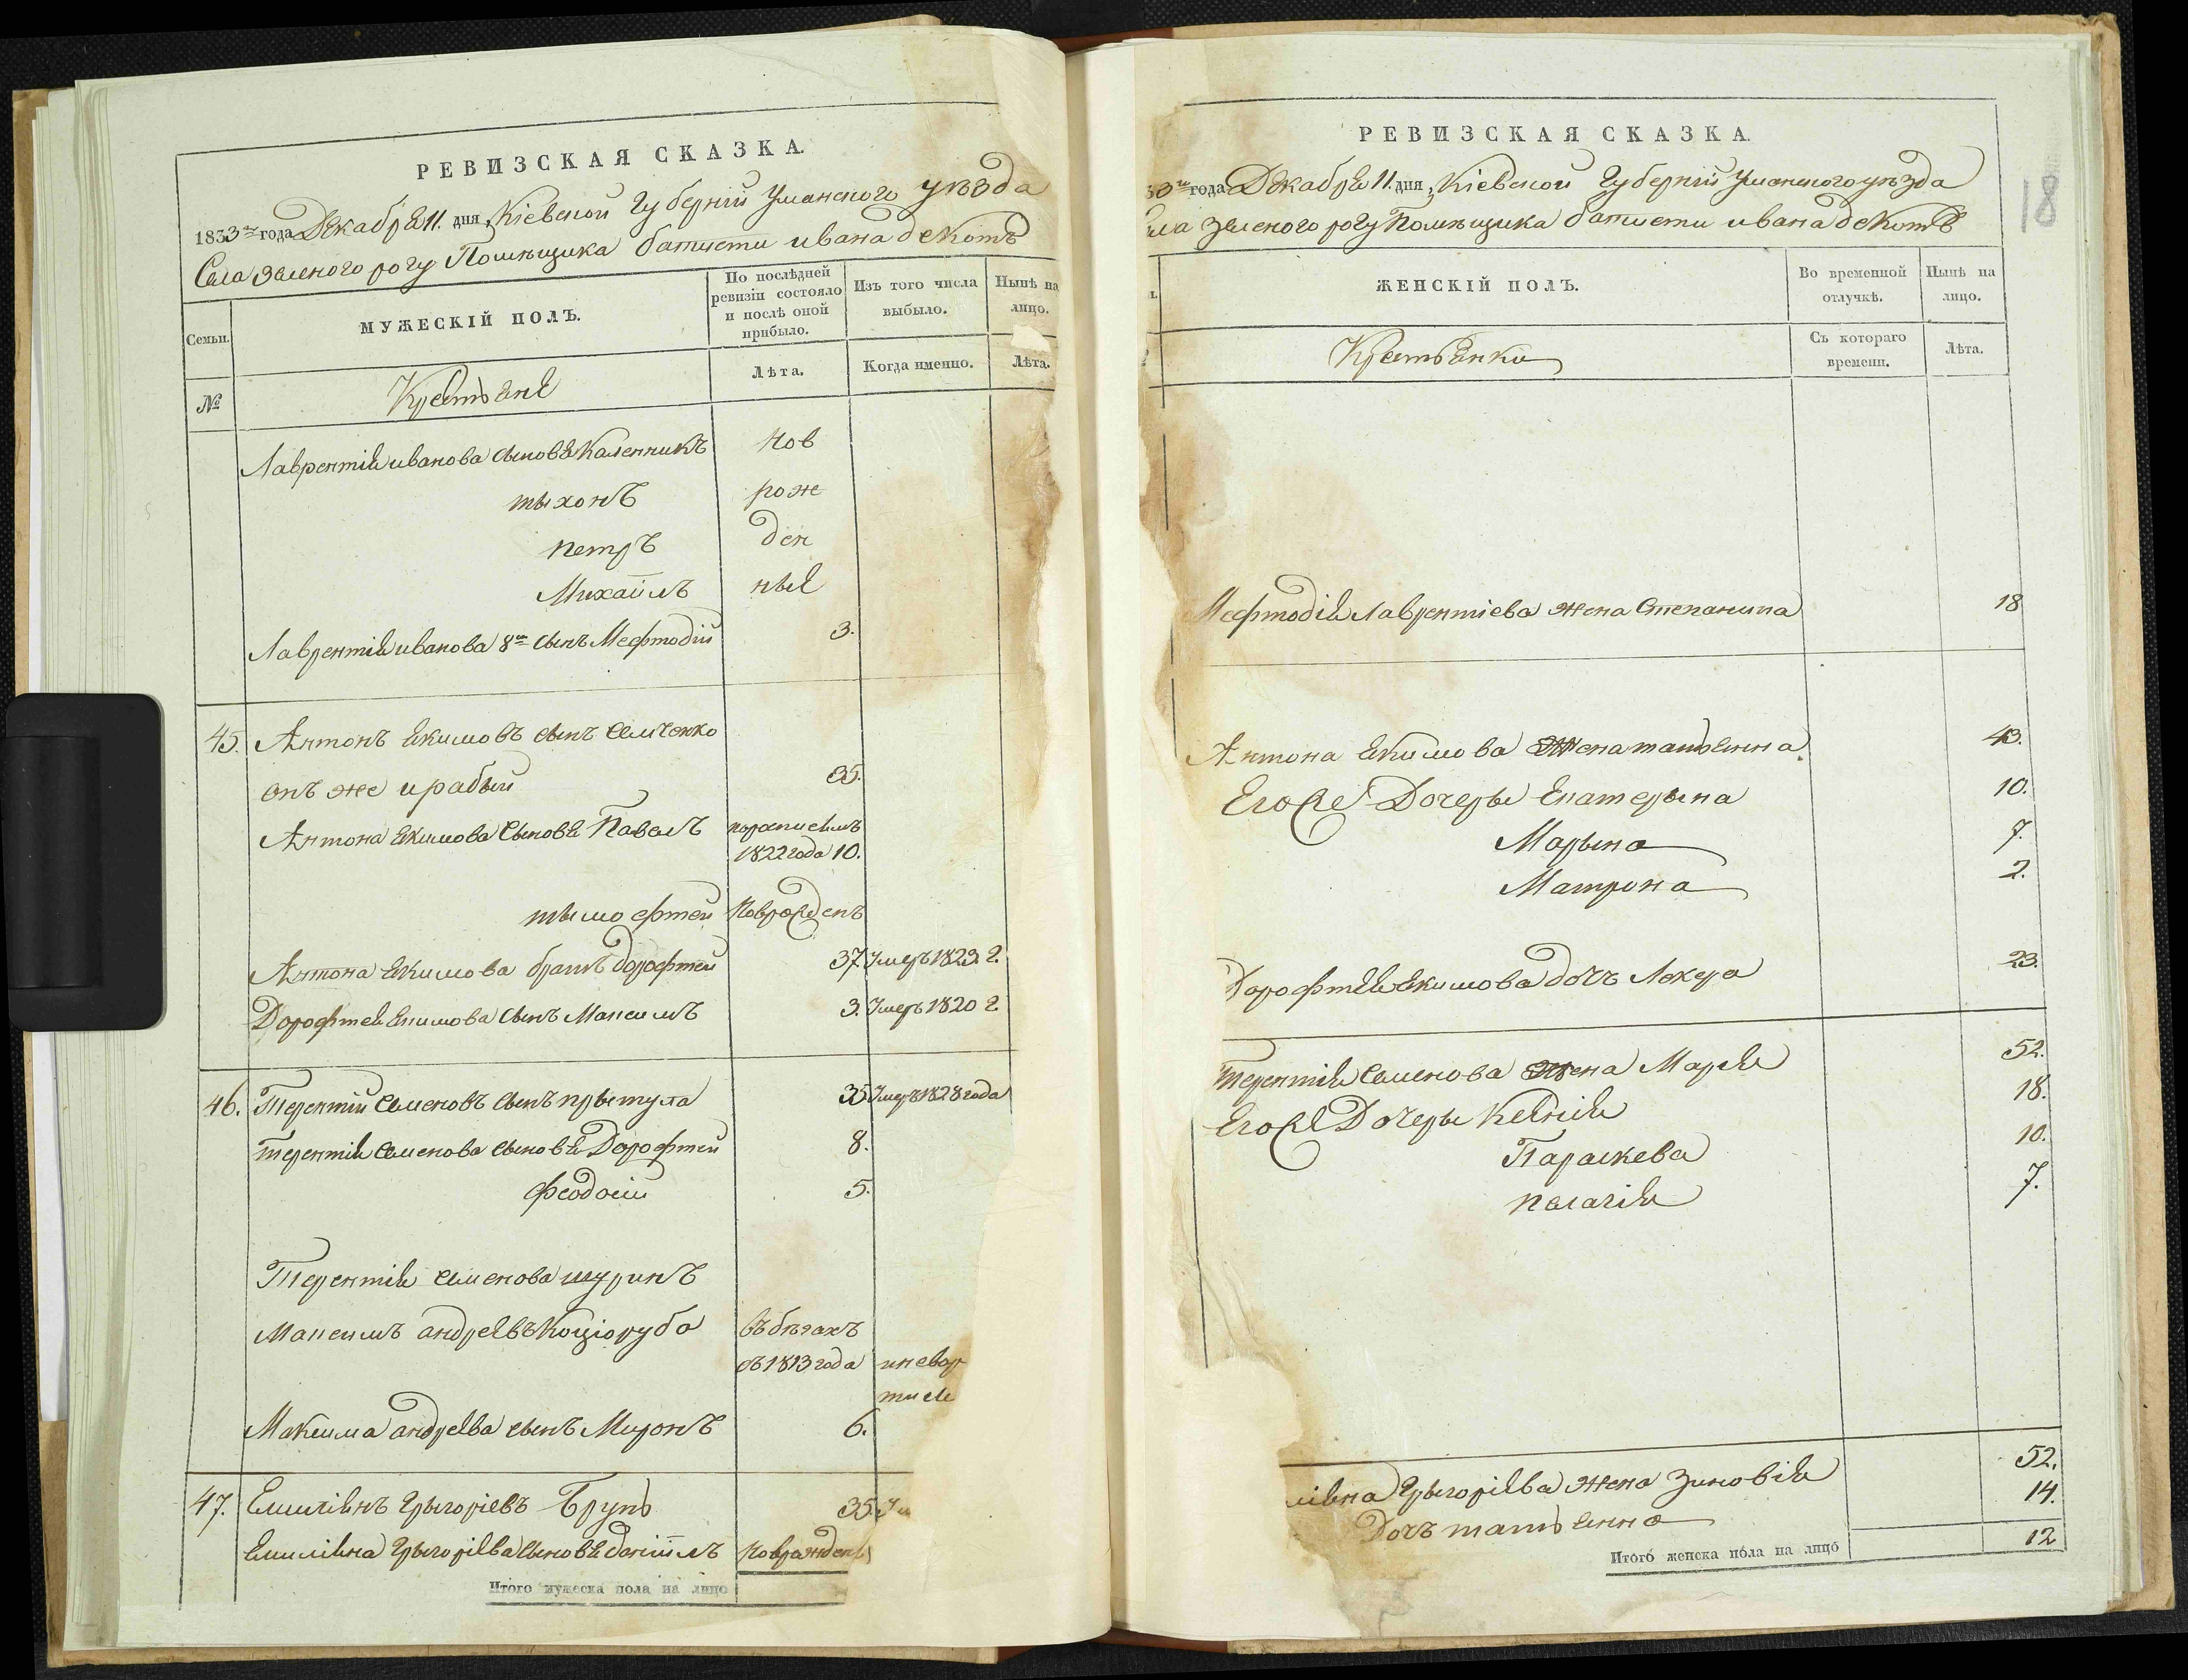 РЕВИЗСКАЯ СКАЗКА.
1833го года Декабря 11. дня, Кіевской Губерніи Уманского уѣзда
Села Зеленого рогу Помѣщика батисти ивана декотъ
Семьи.
МУЖЕСКІЙ ПОЛЪ.
По послѣдней ревизіи состояло и послѣ оной прибыло.
Изъ того числа выбыло.
Нынѣ на лицо.
№
Крестьяне
Лѣта.
Когда именно.
Лѣта.
Лаврентія иванова сыновя Каленникъ нов
тыхонъ рож
петръ ден
Михаилъ ные
Лаврентія иванова 8й сынъ Мефтодій 3.
45. Антонъ Якимовъ сынъ Семченко
онъ же ирабый 35.
Антона Якимова Сыновя Павелъ
1822 года 10.
тымофтей Новрожденъ
Антона Якимова братъ дорофтей 37. Умеръ 1829. г.
Дорофтея Якимова сынъ Максимъ 3. Умеръ 1820 г
46. Терентій Семеновъ сынъ прытула 35 Умеръ 1828 года
терентія Семенова сыновя Дорофтей 8.
Феодосій 5.
Терентія Семенова шуринъ
Максимъ андреевъ Коціоруба въ бѣгахъ
съ 1813 года
Максима андреева сынъ Миронъ 6.
47. Емиліянъ Грыгоріевъ Брунь 35.
Емиліяна Грыгоріева сыновя даніилъ Новрожденъ
Итого мужеска пола на лицо
РЕВИЗСКАЯ СКАЗКА.
года Декабря 11. дня, Кіевской Губерніи Уманского уѣзда
Зеленого рогу Помѣщика батисти ивана декотъ
18
ЖЕНСКІЙ ПОЛЪ.
Во временной отлучкѣ.
Нынѣ на лицо.
Крестьянки
Съ котораго времени.
Лѣта.
Мефтодія Лаврентіева жена Степанида 18
Антона Якимова Жена татьянна 43.
Его же Дочеры Екатерына 10.
Марына 7.
Матрона 2.
Дорофтея Якимова дочь Локера 23.
терентія Семенова Жена Марія 52.
Его же Дочеры Ксенія 18.
Параскева 10.
пелагія 7.
Грыгоріева жена Зиновія 52.
Дочь татьянна 14.
Итого женска пола на лицо 12